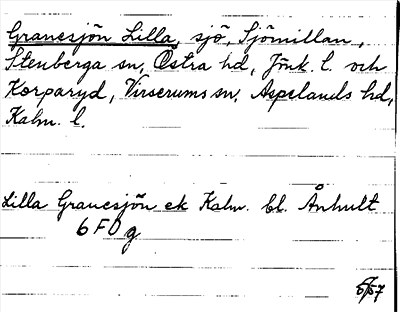 Granesjön Lilla, sjö, Sjömillan,
Stenberga sn, Östra hd, Jönk. l. och
Korparyd, Virserums sn, Aspelands hd,
Kalm. l.
Lilla Granesjön ek Kalm. bl. Ånhult
6 F 0 g